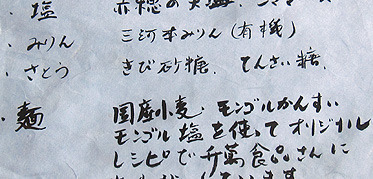 塩 赤穂の天塩
・みりん 三河本みりん(有機)
・さとう きび砂糖、てんさい糖
・麺 国産小麦、モンゴルかんすい
モンゴル塩を使って オリジナル
レシピで 升萬食品さんに